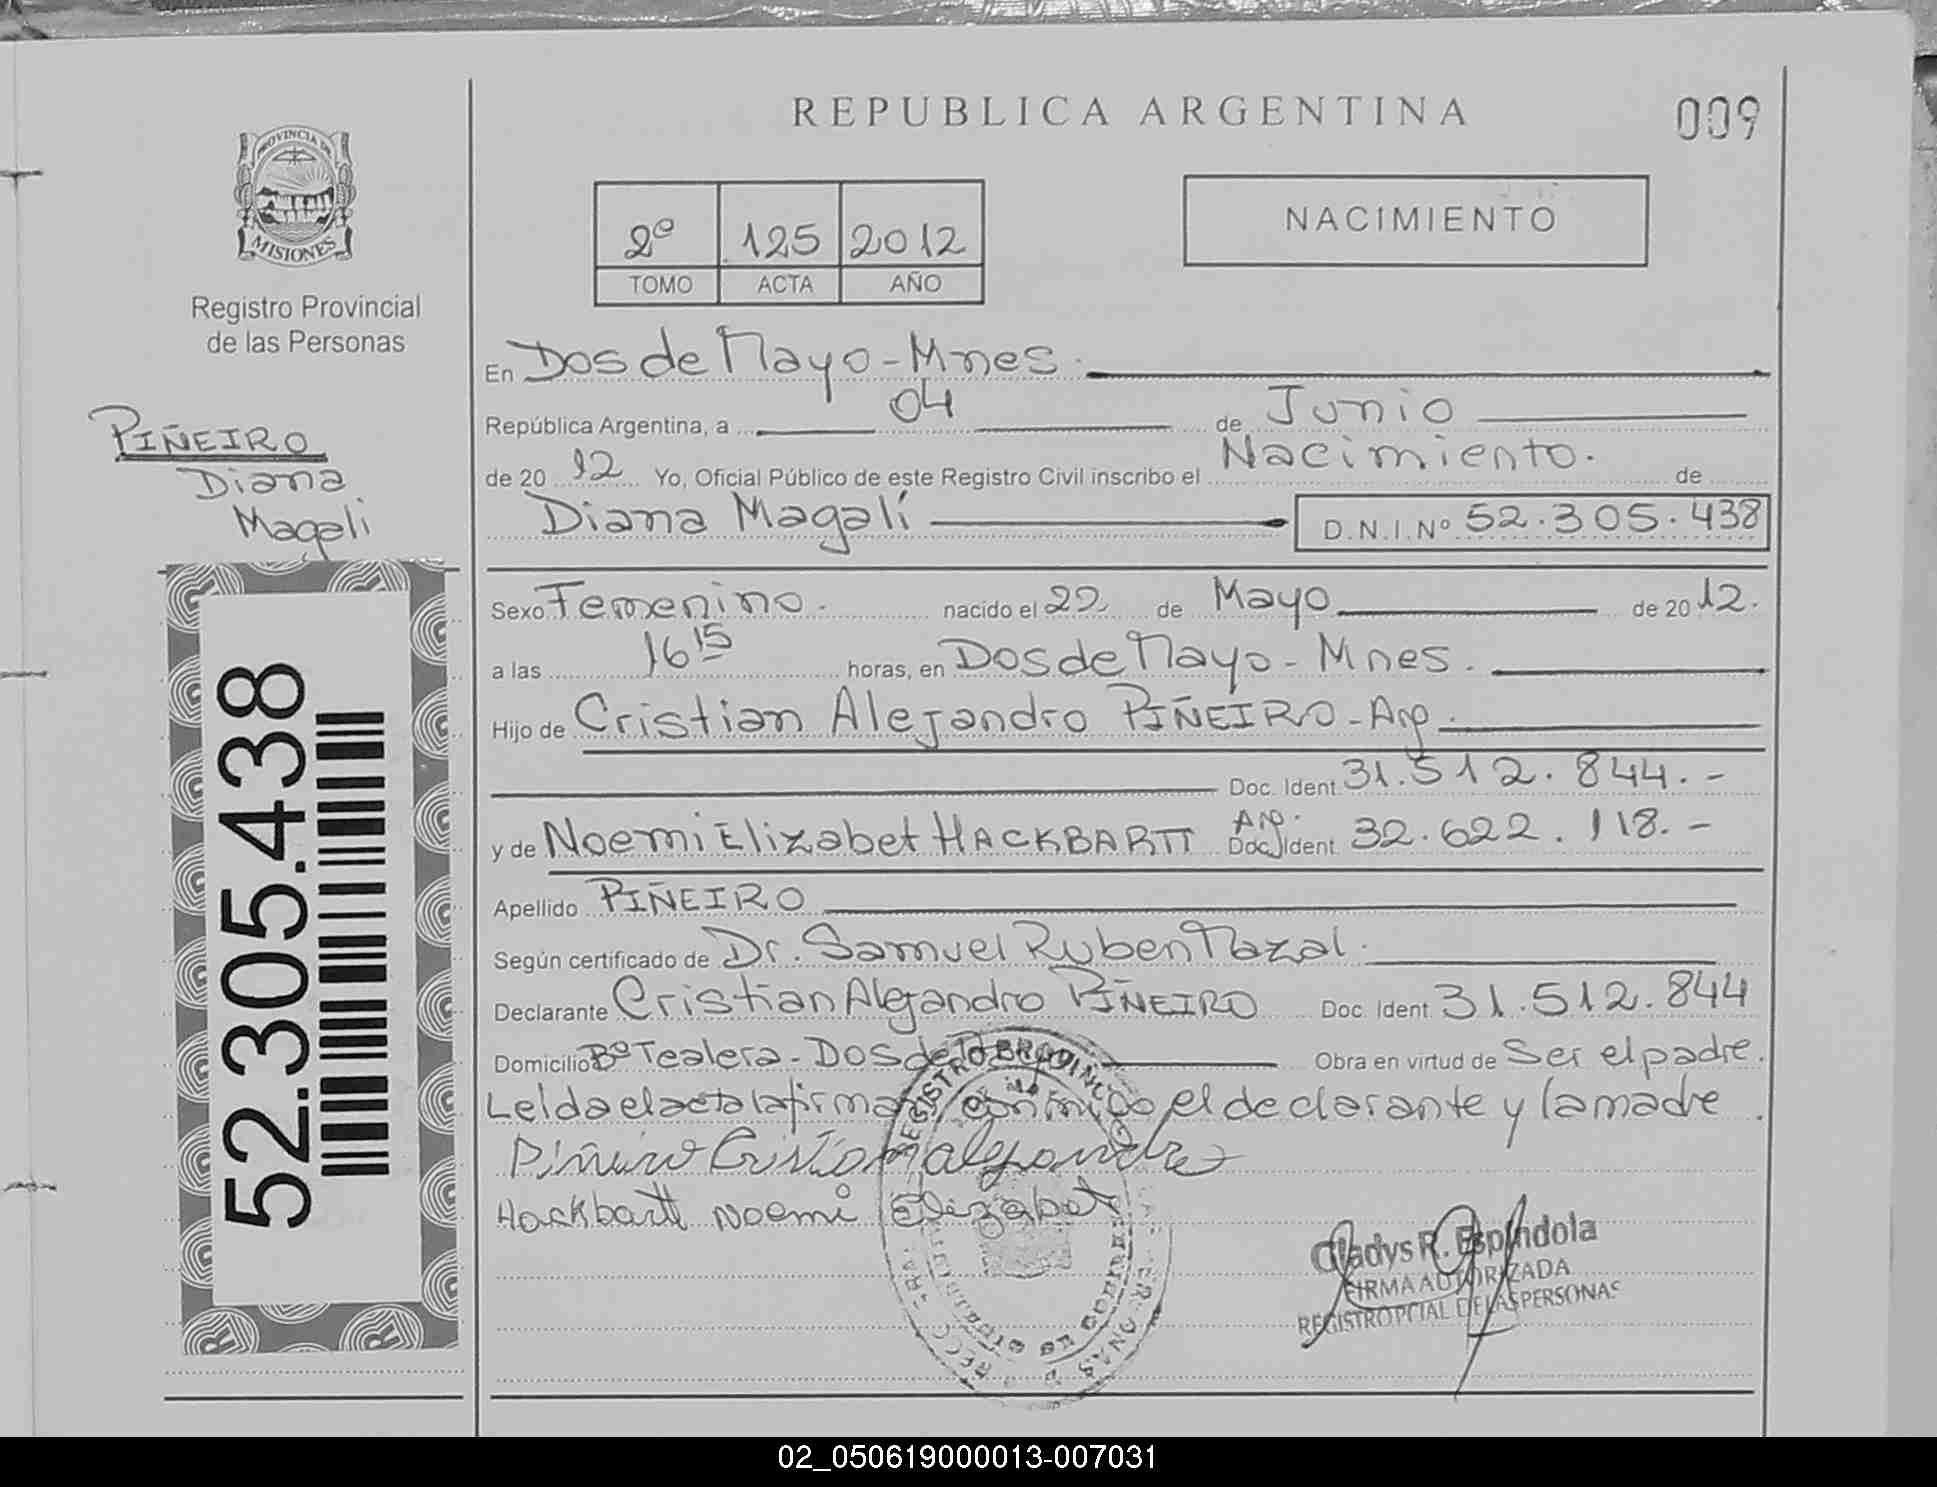 REPUBLICA ARGENTINA
009
PROVINCIA DE
MISIONES
Registro Provincial
de las Personas
2º 125 2012
TOMO ACTA AÑO
NACIMIENTO
PIÑEIRO
Diana
Magali
52.305.438
En Dos de Mayo - Mnes.
República Argentina, a 04 de Junio
de 20 12 Yo, Oficial Público de este Registro Civil inscribo el Nacimiento. de
Diana Magalí D.N.I.Nº 52.305.438
Sexo Femenino. nacido el 22 de Mayo de 20 12.
a las 16 15 horas, en Dos de Mayo - Mnes.
Hijo de Cristian Alejandro PIÑEIRO - Arg.
Doc. Ident. 31.512.844.-
y de Noemi Elizabet HACKBARTT Arg. Doc. Ident. 32.622.118.-
Apellido PIÑEIRO
Según certificado de Dr. Samuel Ruben Nazal.
Declarante Cristian Alejandro PIÑEIRO Doc. Ident. 31.512.844
Domicilio Bº Tealera - Dos de Obra en virtud de Ser el padre.
Leída el acta la firma conmigo el declarante y la madre.
Piñeiro Cristian alejandro
Hackbartt Noemi Elizabet
Gladys R. Espíndola
FIRMA AUTORIZADA
REGISTRO PCIAL DE LAS PERSONAS
02_050619000013-007031